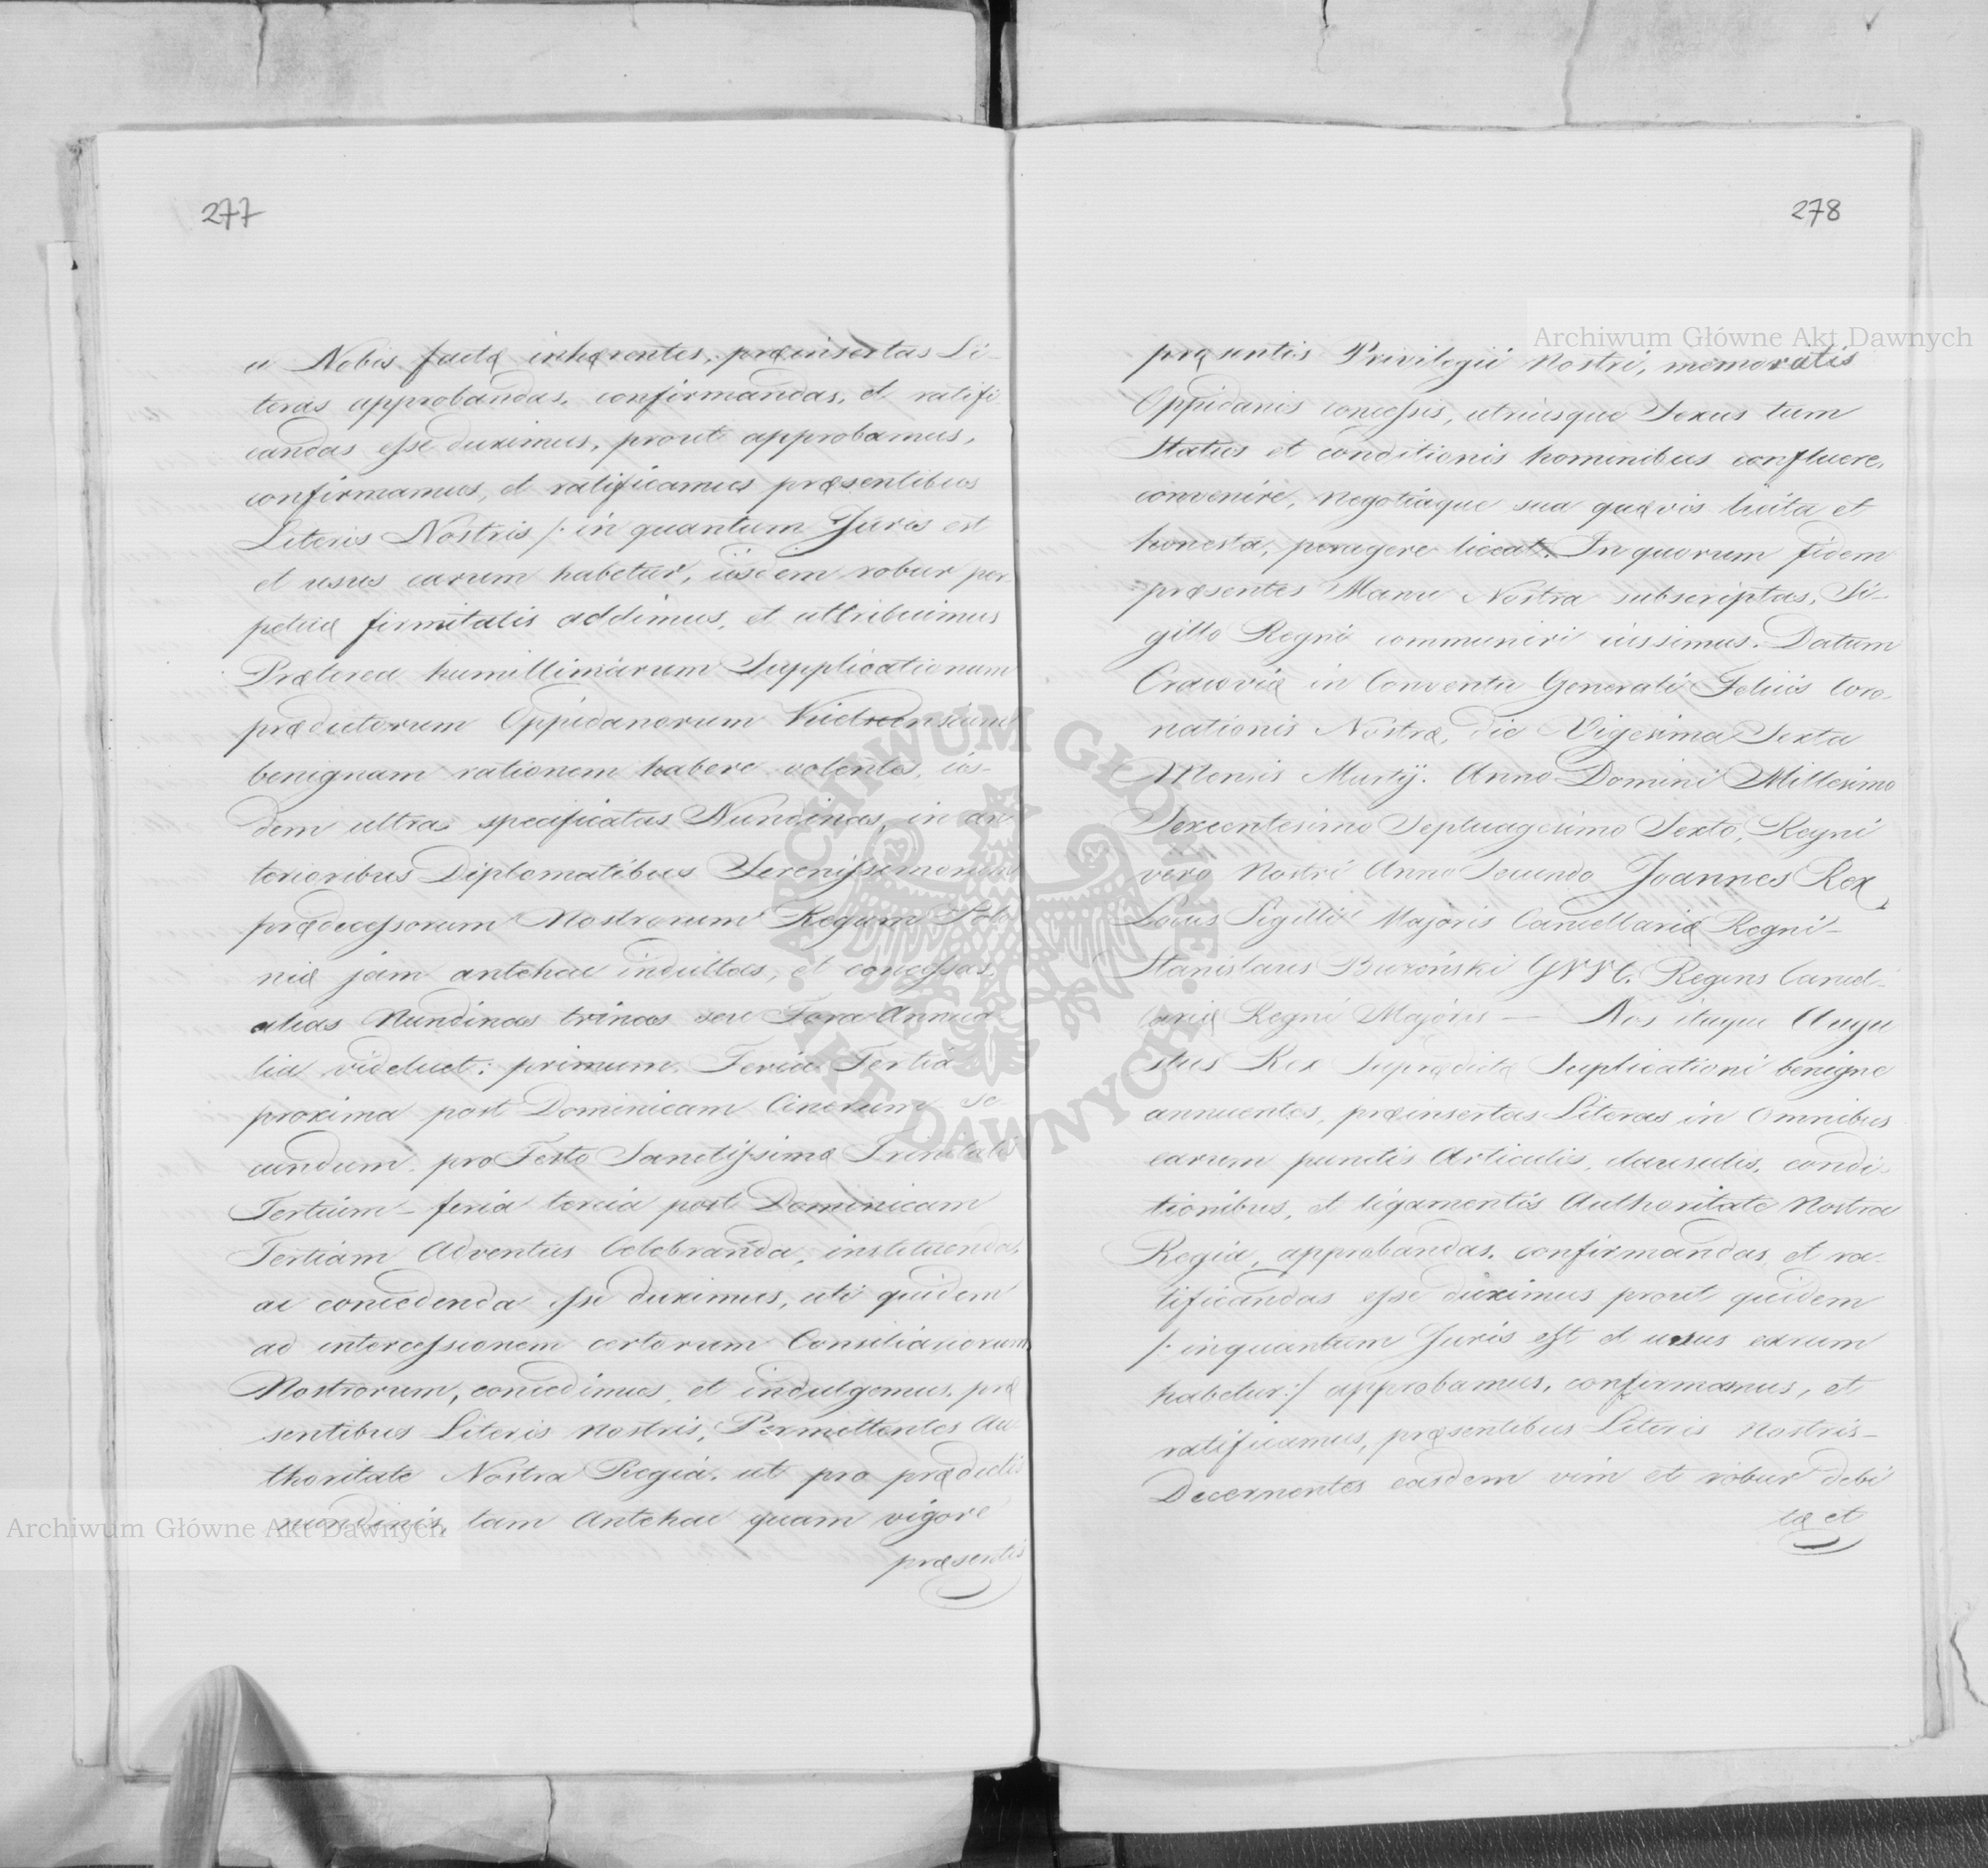 277
a Nobis factæ inhærentes, præinsertas Li-
teras approbandas, confirmandas, et ratifi
candas esse duximus, prout approbamus,
confirmamus, et ratificamus præsentibus
Literis Nostris /: in quantum Juris est
et usus earum habetur, iisdem robur per
petuæ firmitatis addimus, et attribuimus
Præterea humillimarum Supplicationum
prædictorum Oppidanorum
benignam rationem habere volentes, iis-
dem ultra specificatas Nundinas, in an
terioribus Diplomatibus Serenissimorum
prædecessorum Nostrorum Regum Polo
niæ jam antehac indultas, et concessas,
alias Nundinas trinas seu Fora Annua
lia videlicet: primum, Feria Tertia
proxima post Dominicam Cinerum se
cundum pro Festo Sanctissimæ Trinitatis
Tertium – feria tercia post Dominicam
Tertiam Adventus Celebranda, instituenda,
ac concedenda esse duximus, uti quidem
ad intercessionem certorum Consiliariorum
Nostrorum, concedimus, et indulgemus, præ
sentibus Literis nostris, Permittentes Au
thoritate Nostra Regia, ut pro prædictis
nundinis, tam Antehac quam vigore
præsentis
278
præsentis Privilegii Nostri, memoratis
Oppidanis concessis, utriusque Sexus tum
Status et conditionis hominibus confluere,
convenire, negotiaque sua quævis licita et
honesta, peragere liceat. In quorum fidem
præsentes Manu Nostra subscriptas, Si-
gillo Regni communiri iussimus. Datum
Cracoviæ in Conventu Generali Felicis Coro-
nationis Nostræ, die Vigesima Sexta
Mensis Martij. Anno Domini Millesimo
Sexcentesimo Septuagesimo Sexto, Regni
vero Nostri Anno Secundo Joannes Rex
Locus Sigilli Majoris Cancellariæ Regni –
Stanislaus Buxeński Regens Cancel-
lariæ Regni Majoris — Nos itaque Augu
stus Rex Suprædictæ Suplicationi benigne
annuentes, præinsertas Literas in Omnibus
earum punctis Articulis, clausulis, condi-
tionibus, et ligamentis Authoritate Nostra
Regia, approbandas, confirmandas, et ra
tificandas esse duximus prout quidem
/: inquantum Juris est et usus earum
habetur:/ approbamus, confirmamus, et
ratificamus, præsentibus Literis Nostris –
Decernentes easdem vim et robur debi
tæ et
Archiwum Główne Akt Dawnych
Archiwum Główne Akt Dawnych
ARCHIWUM GŁÓWNE
AKT DAWNYCH